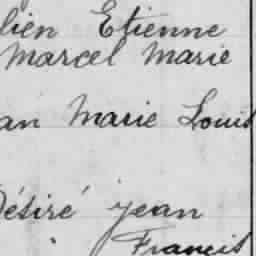 lien Etienne
Marcel Marie
an Marie Louis
Désiré jean
Francis